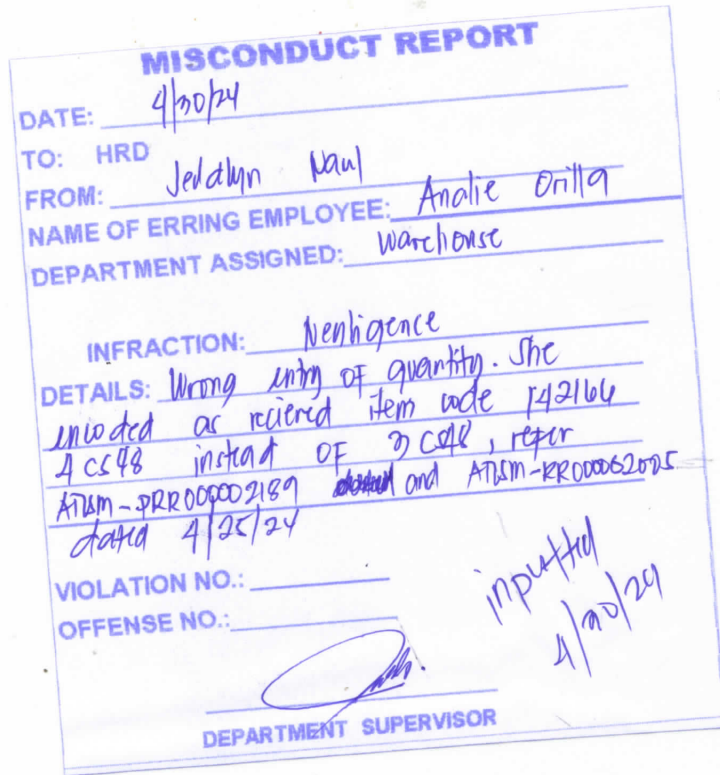 MISCONDUCT REPORT
DATE: 4/30/24
TO: HRD
FROM: Jedatlyn Naul
NAME OF ERRING EMPLOYEE: Analie Orilla
DEPARTMENT ASSIGNED: Warehouse
INFRACTION: Negligence
DETAILS: Wrong entry of quantity. She
encoded as recieved item code 142166
4 cs48 instead OF 3 cs48, refer
and
dated 4/25/24
VIOLATION NO.:
OFFENSE NO.:
inputted
4/30/24
DEPARTMENT SUPERVISOR